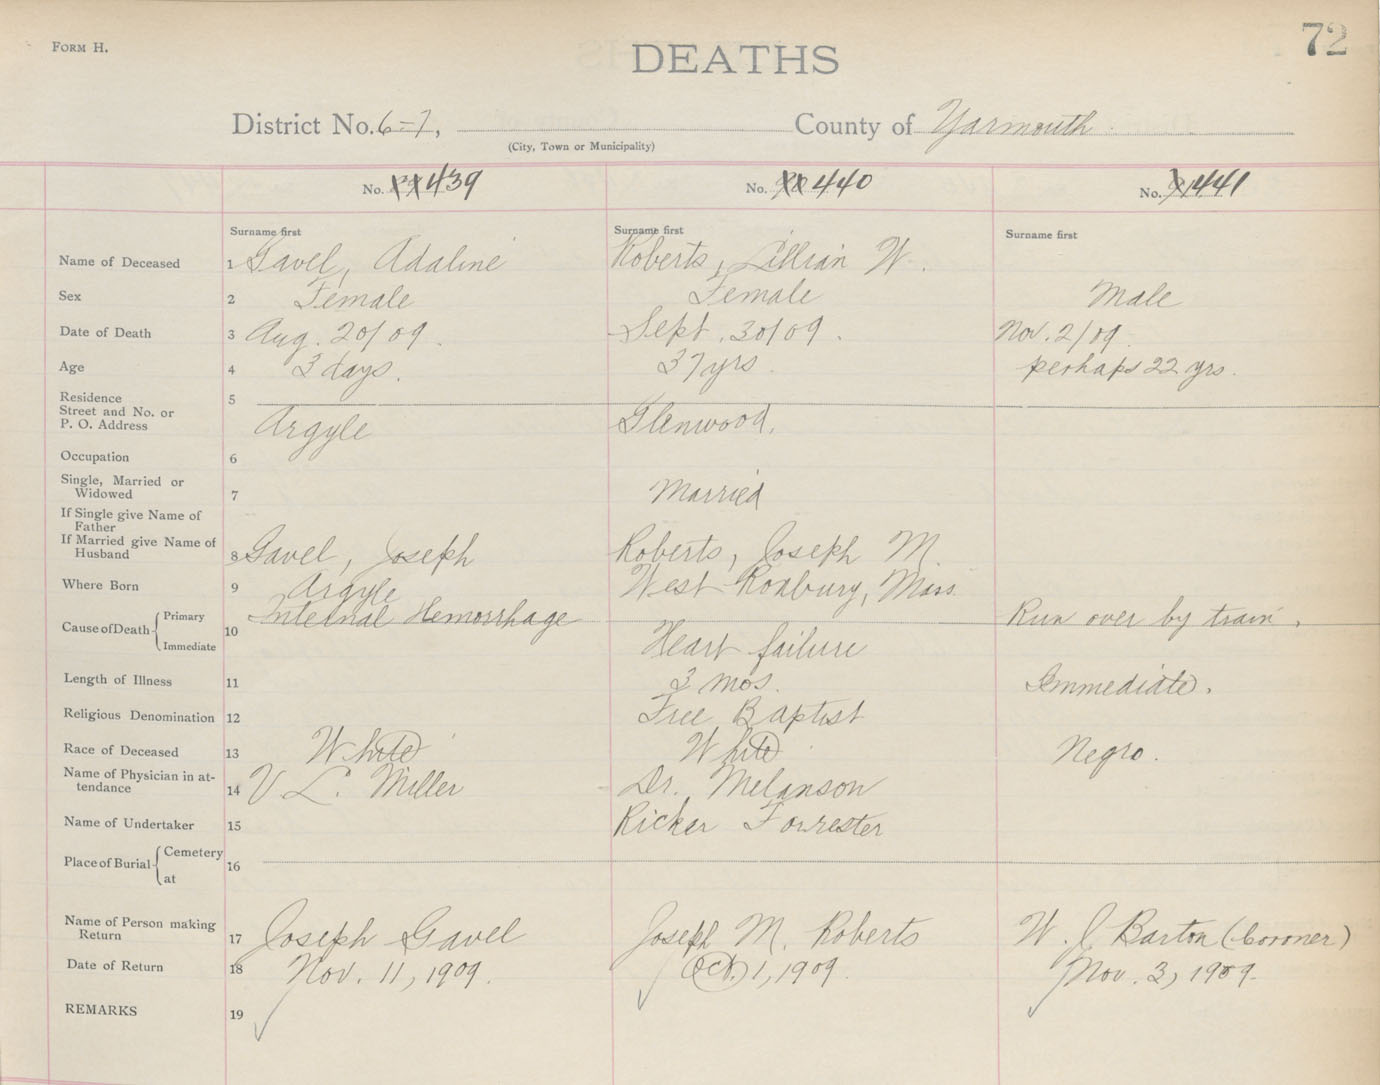 72
FORM H.
DEATHS
District No. 6-7, County of Yarmouth
(City, Town or Municipality)
No. 439 No. 440 No. 441
Surname first Surname first Surname first
Name of Deceased 1 Gavel, Adaline Roberts, Lillian W.
Sex 2 Female Female Male
Date of Death 3 Aug. 20/09. Sept. 30/09. Nov. 2/09.
Age 4 3 days. 37 yrs. perhaps 22 yrs.
Residence 5
Street and No. or
P. O. Address Argyle Glenwood.
Occupation 6
Single, Married or
Widowed 7 Married
If Single give Name of
Father
If Married give Name of
Husband 8 Gavel, Joseph Roberts, Joseph M.
Where Born 9 Argyle West Roxbury, Mass.
Cause of Death { Primary 10 Internal Hemorrhage Run over by train.
Immediate Heart failure
Length of Illness 11 3 mos. Immediate.
Religious Denomination 12 Free Baptist
Race of Deceased 13 White White Negro.
Name of Physician in at-
tendance 14 V. L. Miller Dr. Melanson
Name of Undertaker 15 Ricker Forrester
Place of Burial { Cemetery 16
at
Name of Person making
Return 17 Joseph Gavel Joseph M. Roberts W. J. Barton (Coroner)
Date of Return 18 Nov. 11, 1909. Oct. 1, 1909. Nov. 3, 1909.
REMARKS 19